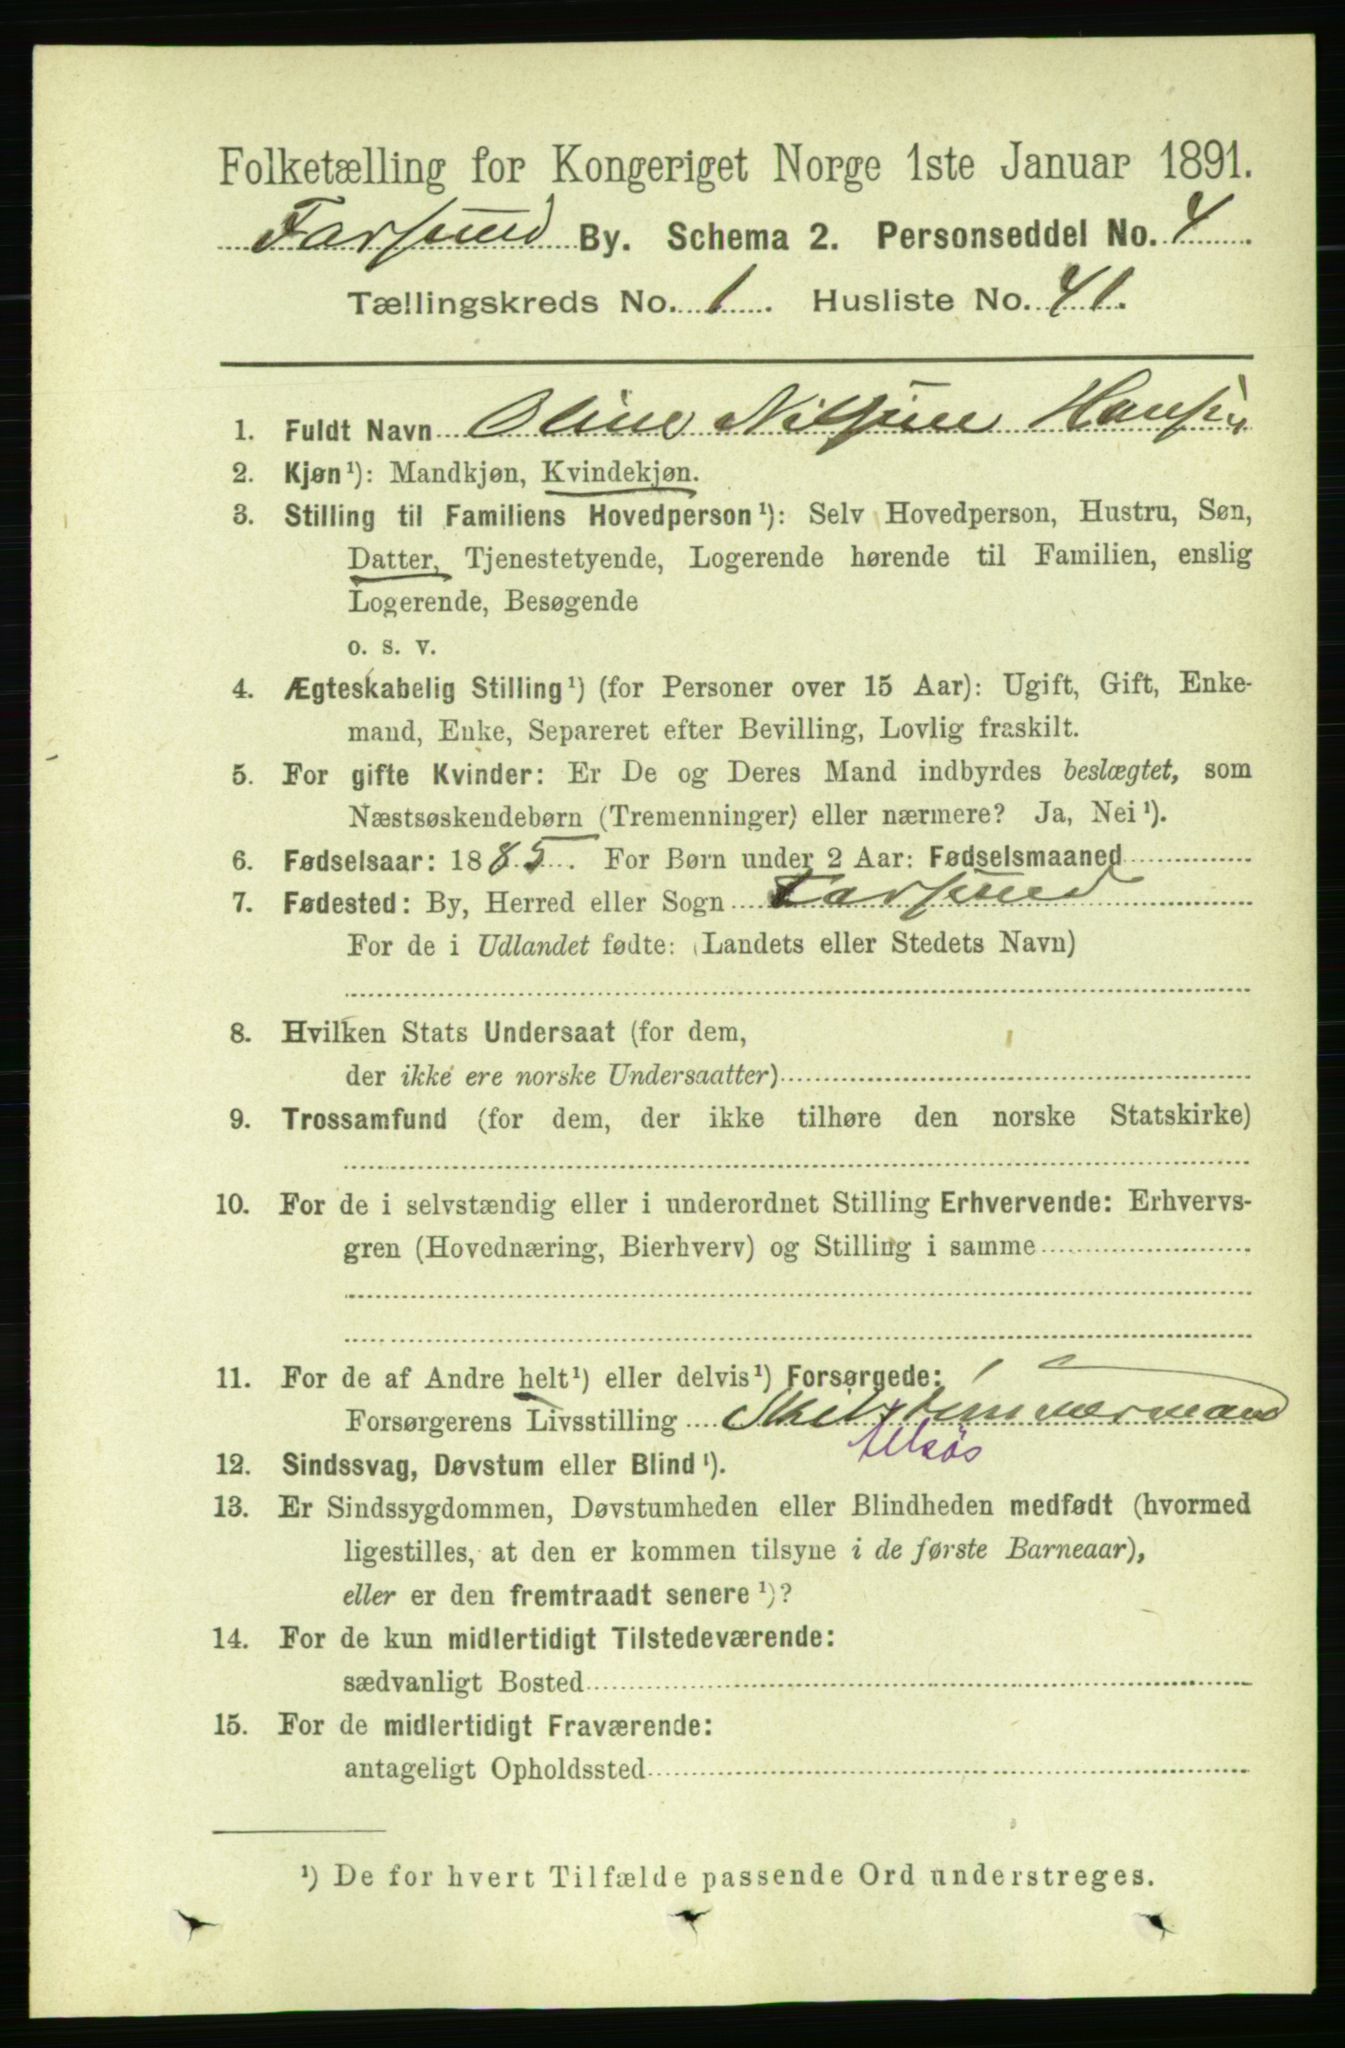 Folketælling for Kongeriget Norge 1ste Januar 1891.
Farsund By. Schema 2. Personseddel No. 4
Tællingskreds No. 1. Husliste No. 41.
1. Fuldt Navn Oline Nilsine Hansen
2. Kjøn¹): Mandkjøn, Kvindekjøn.
3. Stilling til Familiens Hovedperson¹): Selv Hovedperson, Hustru, Søn,
Datter, Tjenestetyende, Logerende hørende til Familien, enslig
Logerende, Besøgende
o. s. v.
4. Ægteskabelig Stilling¹) (for Personer over 15 Aar): Ugift, Gift, Enke-
mand, Enke, Separeret efter Bevilling, Lovlig fraskilt.
5. For gifte Kvinder: Er De og Deres Mand indbyrdes beslægtet, som
Næstsøskendebørn (Tremenninger) eller nærmere? Ja, Nei¹).
6. Fødselsaar: 1885. For Børn under 2 Aar: Fødselsmaaned
7. Fødested: By, Herred eller Sogn Farsund
For de i Udlandet fødte: (Landets eller Stedets Navn)
8. Hvilken Stats Undersaat (for dem,
der ikke ere norske Undersaatter)
9. Trossamfund (for dem, der ikke tilhøre den norske Statskirke)
10. For de i selvstændig eller i underordnet Stilling Erhvervende: Erhvervs-
gren (Hovednæring, Bierhverv) og Stilling i samme
11. For de af Andre helt¹) eller delvis¹) Forsørgede:
Forsørgerens Livsstilling Skibstømmermand
12. Sindssvag, Døvstum eller Blind¹).
13. Er Sindssygdommen, Døvstumheden eller Blindheden medfødt (hvormed
ligestilles, at den er kommen tilsyne i de første Barneaar),
eller er den fremtraadt senere¹)?
14. For de kun midlertidigt Tilstedeværende:
sædvanligt Bosted
15. For de midlertidigt Fraværende:
antageligt Opholdssted
¹) De for hvert Tilfælde passende Ord understreges.